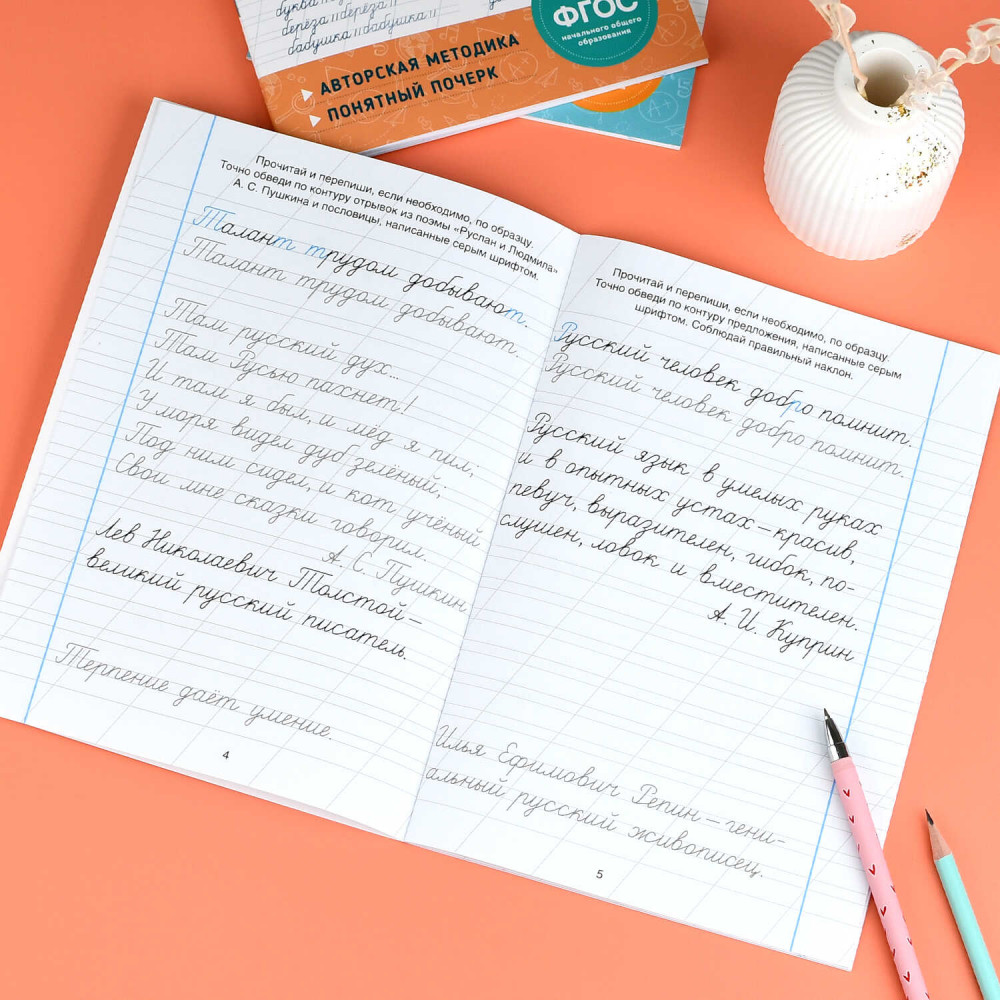 буква
берёза ıı берёза ıı
бабушка ıı бабушка ıı
ФГОС
начального общего
образования
АВТОРСКАЯ МЕТОДИКА
ПОНЯТНЫЙ ПОЧЕРК
Прочитай и перепиши, если необходимо, по образцу.
Точно обведи по контуру отрывок из поэмы «Руслан и Людмила»
А. С. Пушкина и пословицы, написанные серым шрифтом.
Талант трудом добывают.
Талант трудом добывают.
Там русский дух...
Там Русью пахнет!
И там я был, и мёд я пил;
У моря видел дуб зелёный;
Под ним сидел, и кот учёный
Свои мне сказки говорил.
А. С. Пушкин
Лев Николаевич Толстой –
великий русский писатель.
Терпение даёт умение.
4
Прочитай и перепиши, если необходимо, по образцу.
Точно обведи по контуру предложения, написанные серым
шрифтом. Соблюдай правильный наклон.
Русский человек добро помнит.
Русский человек добро помнит.
Русский язык в умелых руках
и в опытных устах – красив,
певуч, выразителен, гибок, по-
слушен, ловок и вместителен.
А. И. Куприн
Илья Ефимович Репин – гени-
альный русский живописец.
5